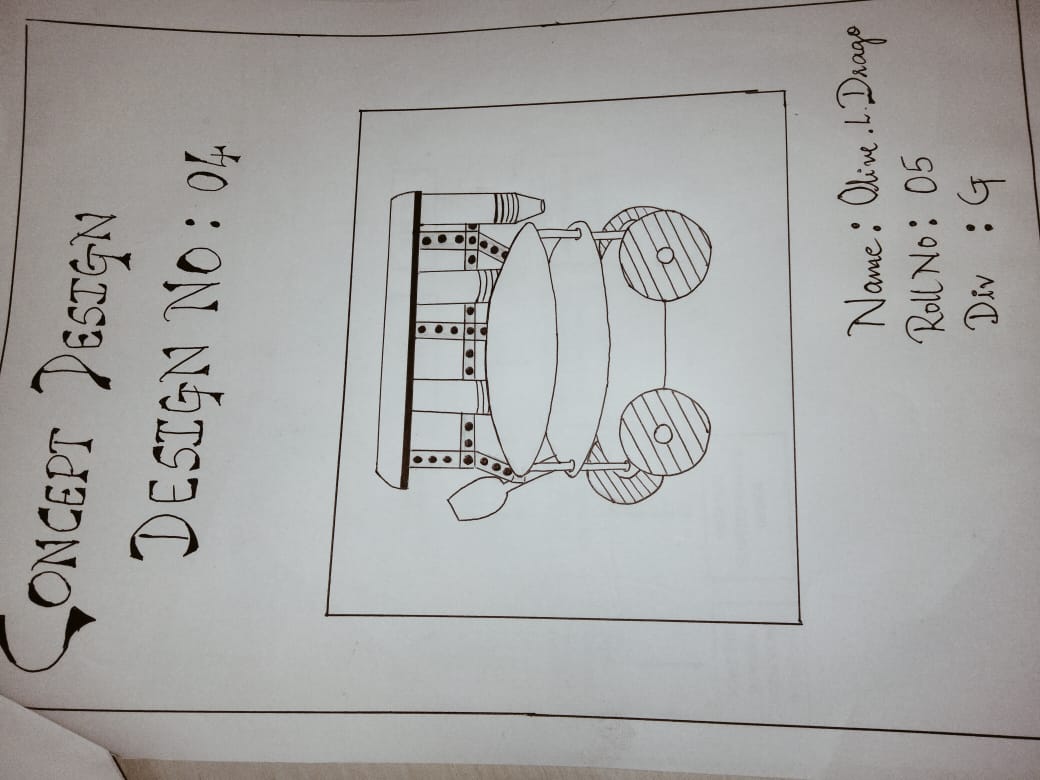 CONCEPT DESIGN
DESIGN NO: 04
Name: Olive.L.Drago
Roll No: 05
Div : G